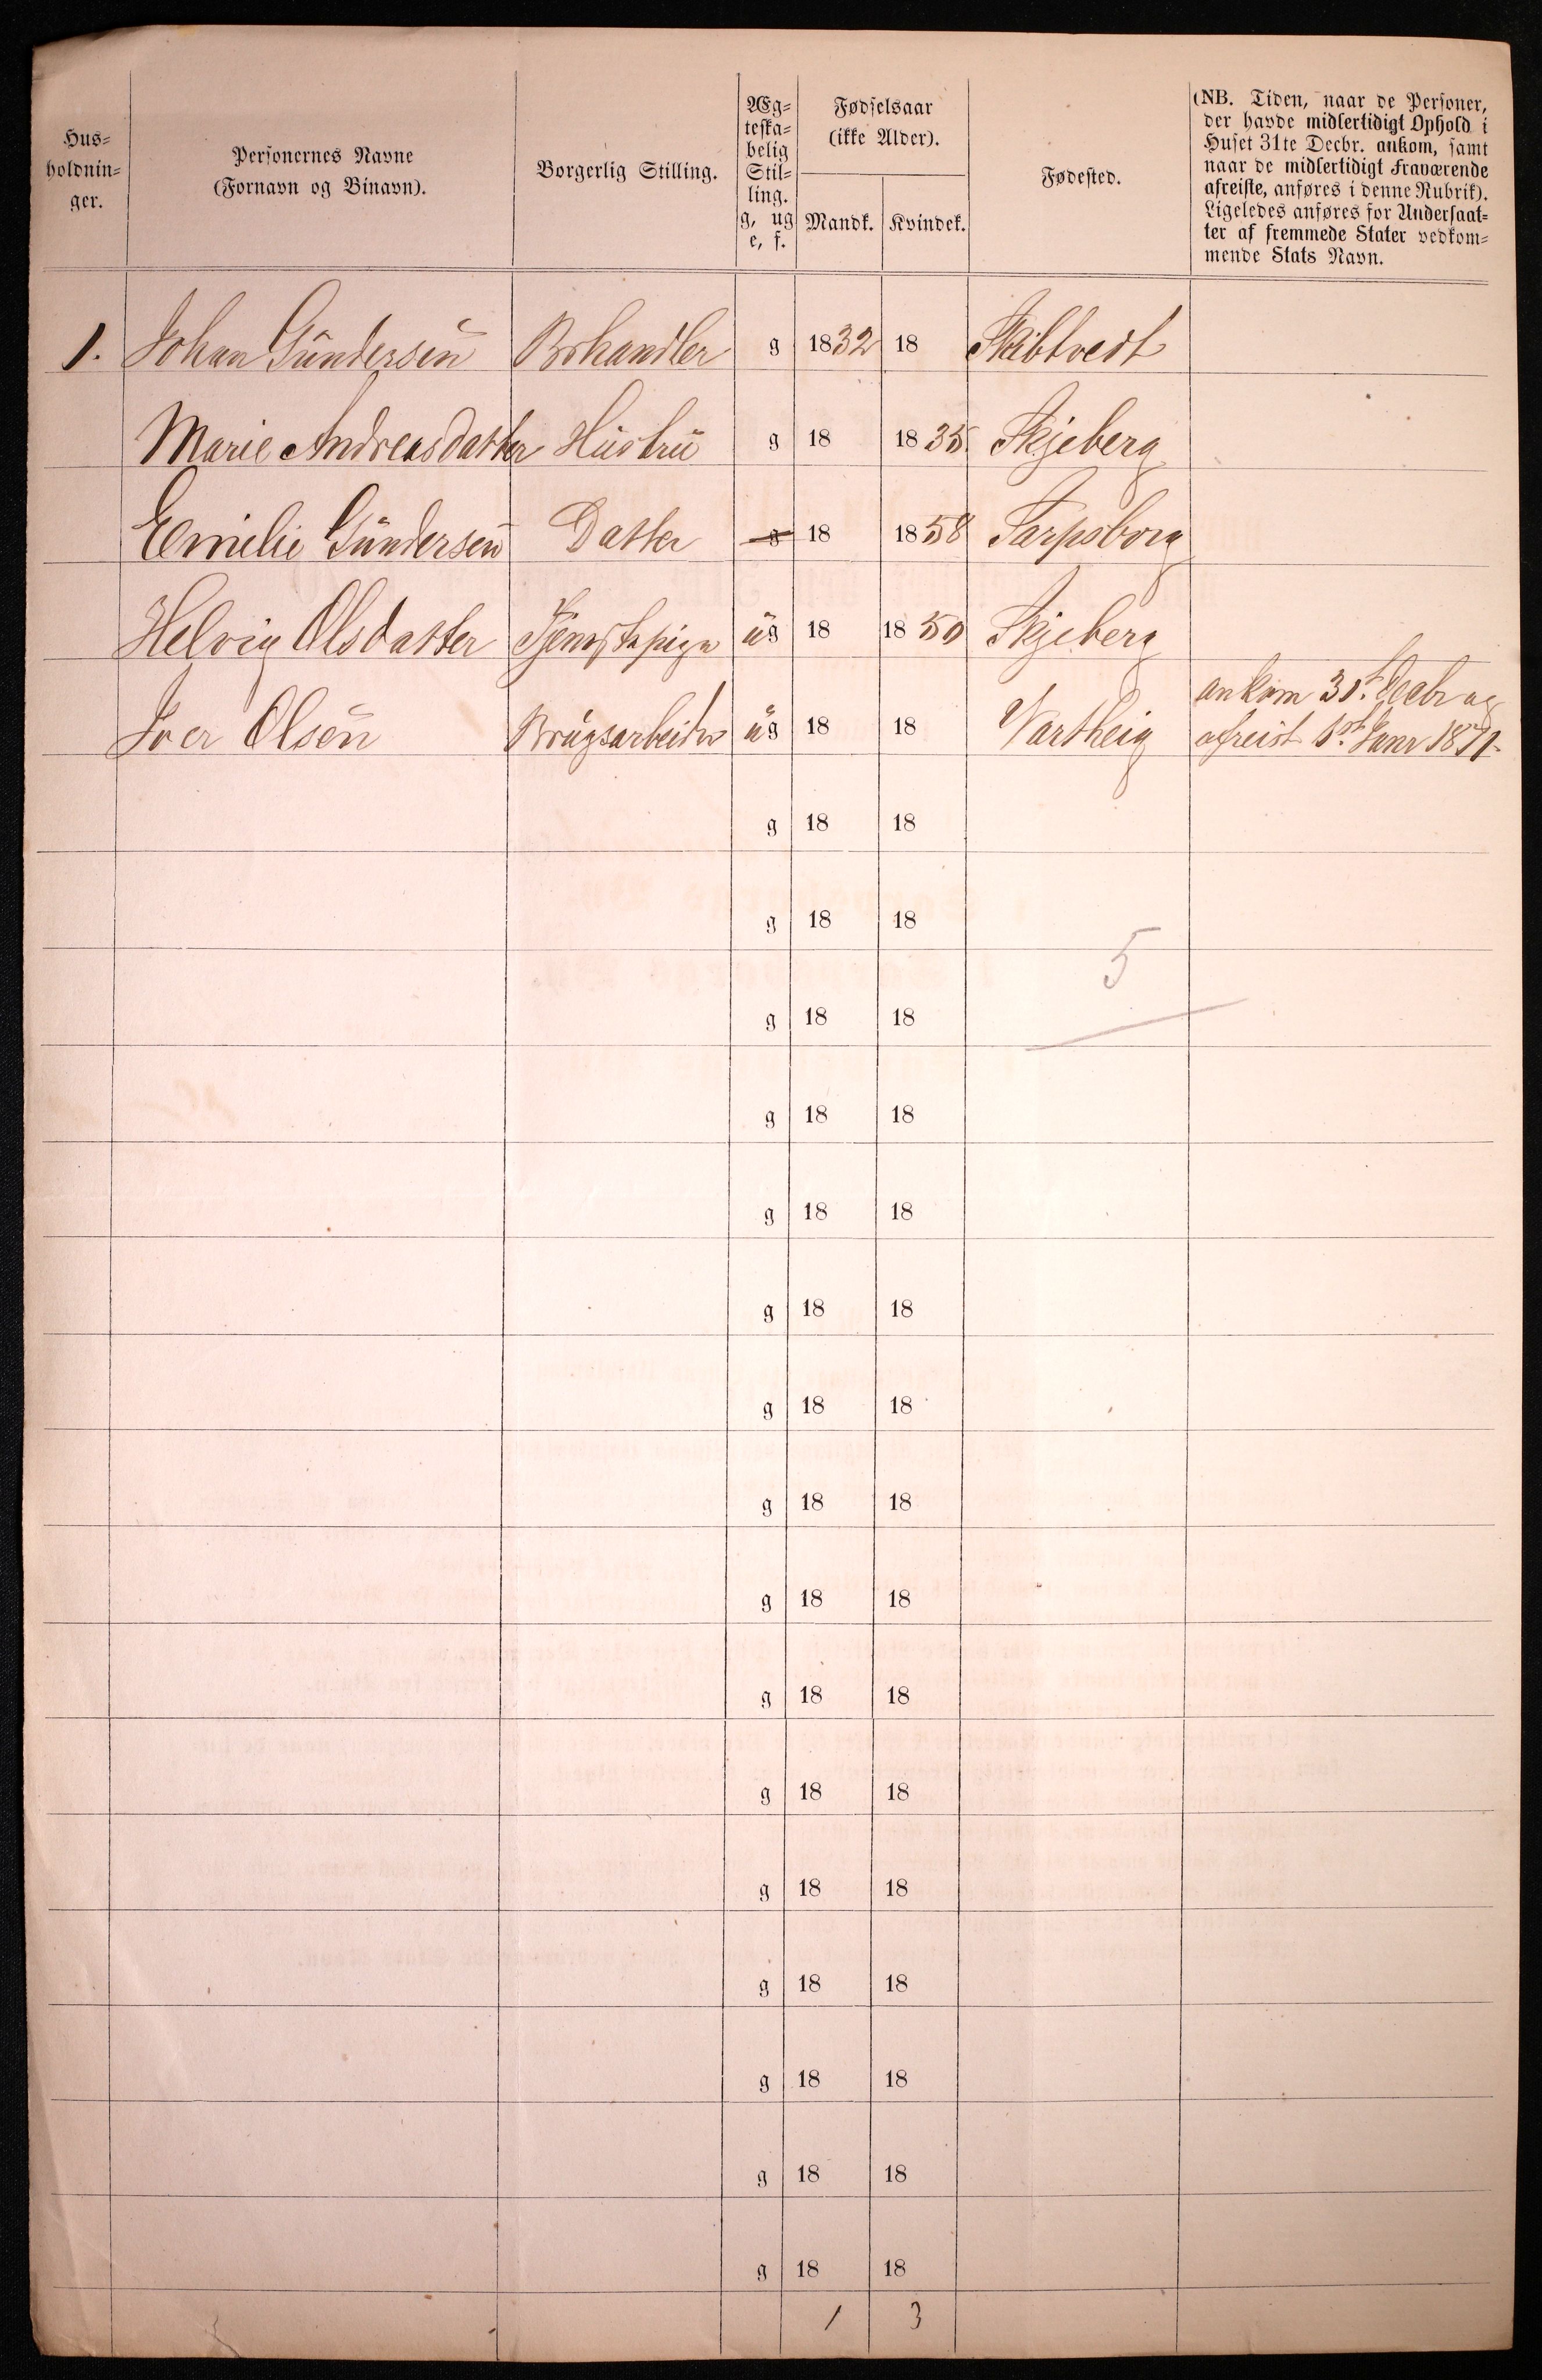 Hus=
holdnin=
ger.
Personernes Navne
(Fornavn og Binavn).
Borgerlig Stilling.
Æg=
teska=
belig
Stil=
ling.
g, ug
e, f.
Fødselsaar
(ikke Alder).
Mandk. Kvindek.
Fødested.
(NB. Tiden, naar de Personer,
der havde midlertidigt Ophold i
Huset 31te Decbr. ankom, samt
naar de midlertidigt Fraværende
afreiste, anføres i denne Rubrik).
Ligeledes anføres for Undersaat=
ter af fremmede Stater vedkom=
mende Stats Navn.
1. Johan Gundersen Brhandler g 1832 18 Skibtvedt
Marie Andreasdatter Hustru g 18 1835 Skjeberg
Emilie Gundersen Datter g 18 1858 Sarpsborg
Helvig Olsdatter Tjenestepige ug 18 1850 Skjeberg
ankom 31. Decbr og
Iver Olsen Brugsarbeider ug 18 18 Vartheig afreist 1st Janr 1871.
g 18 18
g 18 18
5
g 18 18
g 18 18
g 18 18
g 18 18
g 18 18
g 18 18
g 18 18
g 18 18
g 18 18
g 18 18
g 18 18
g 18 18
g 18 18
g 18 18
1 3